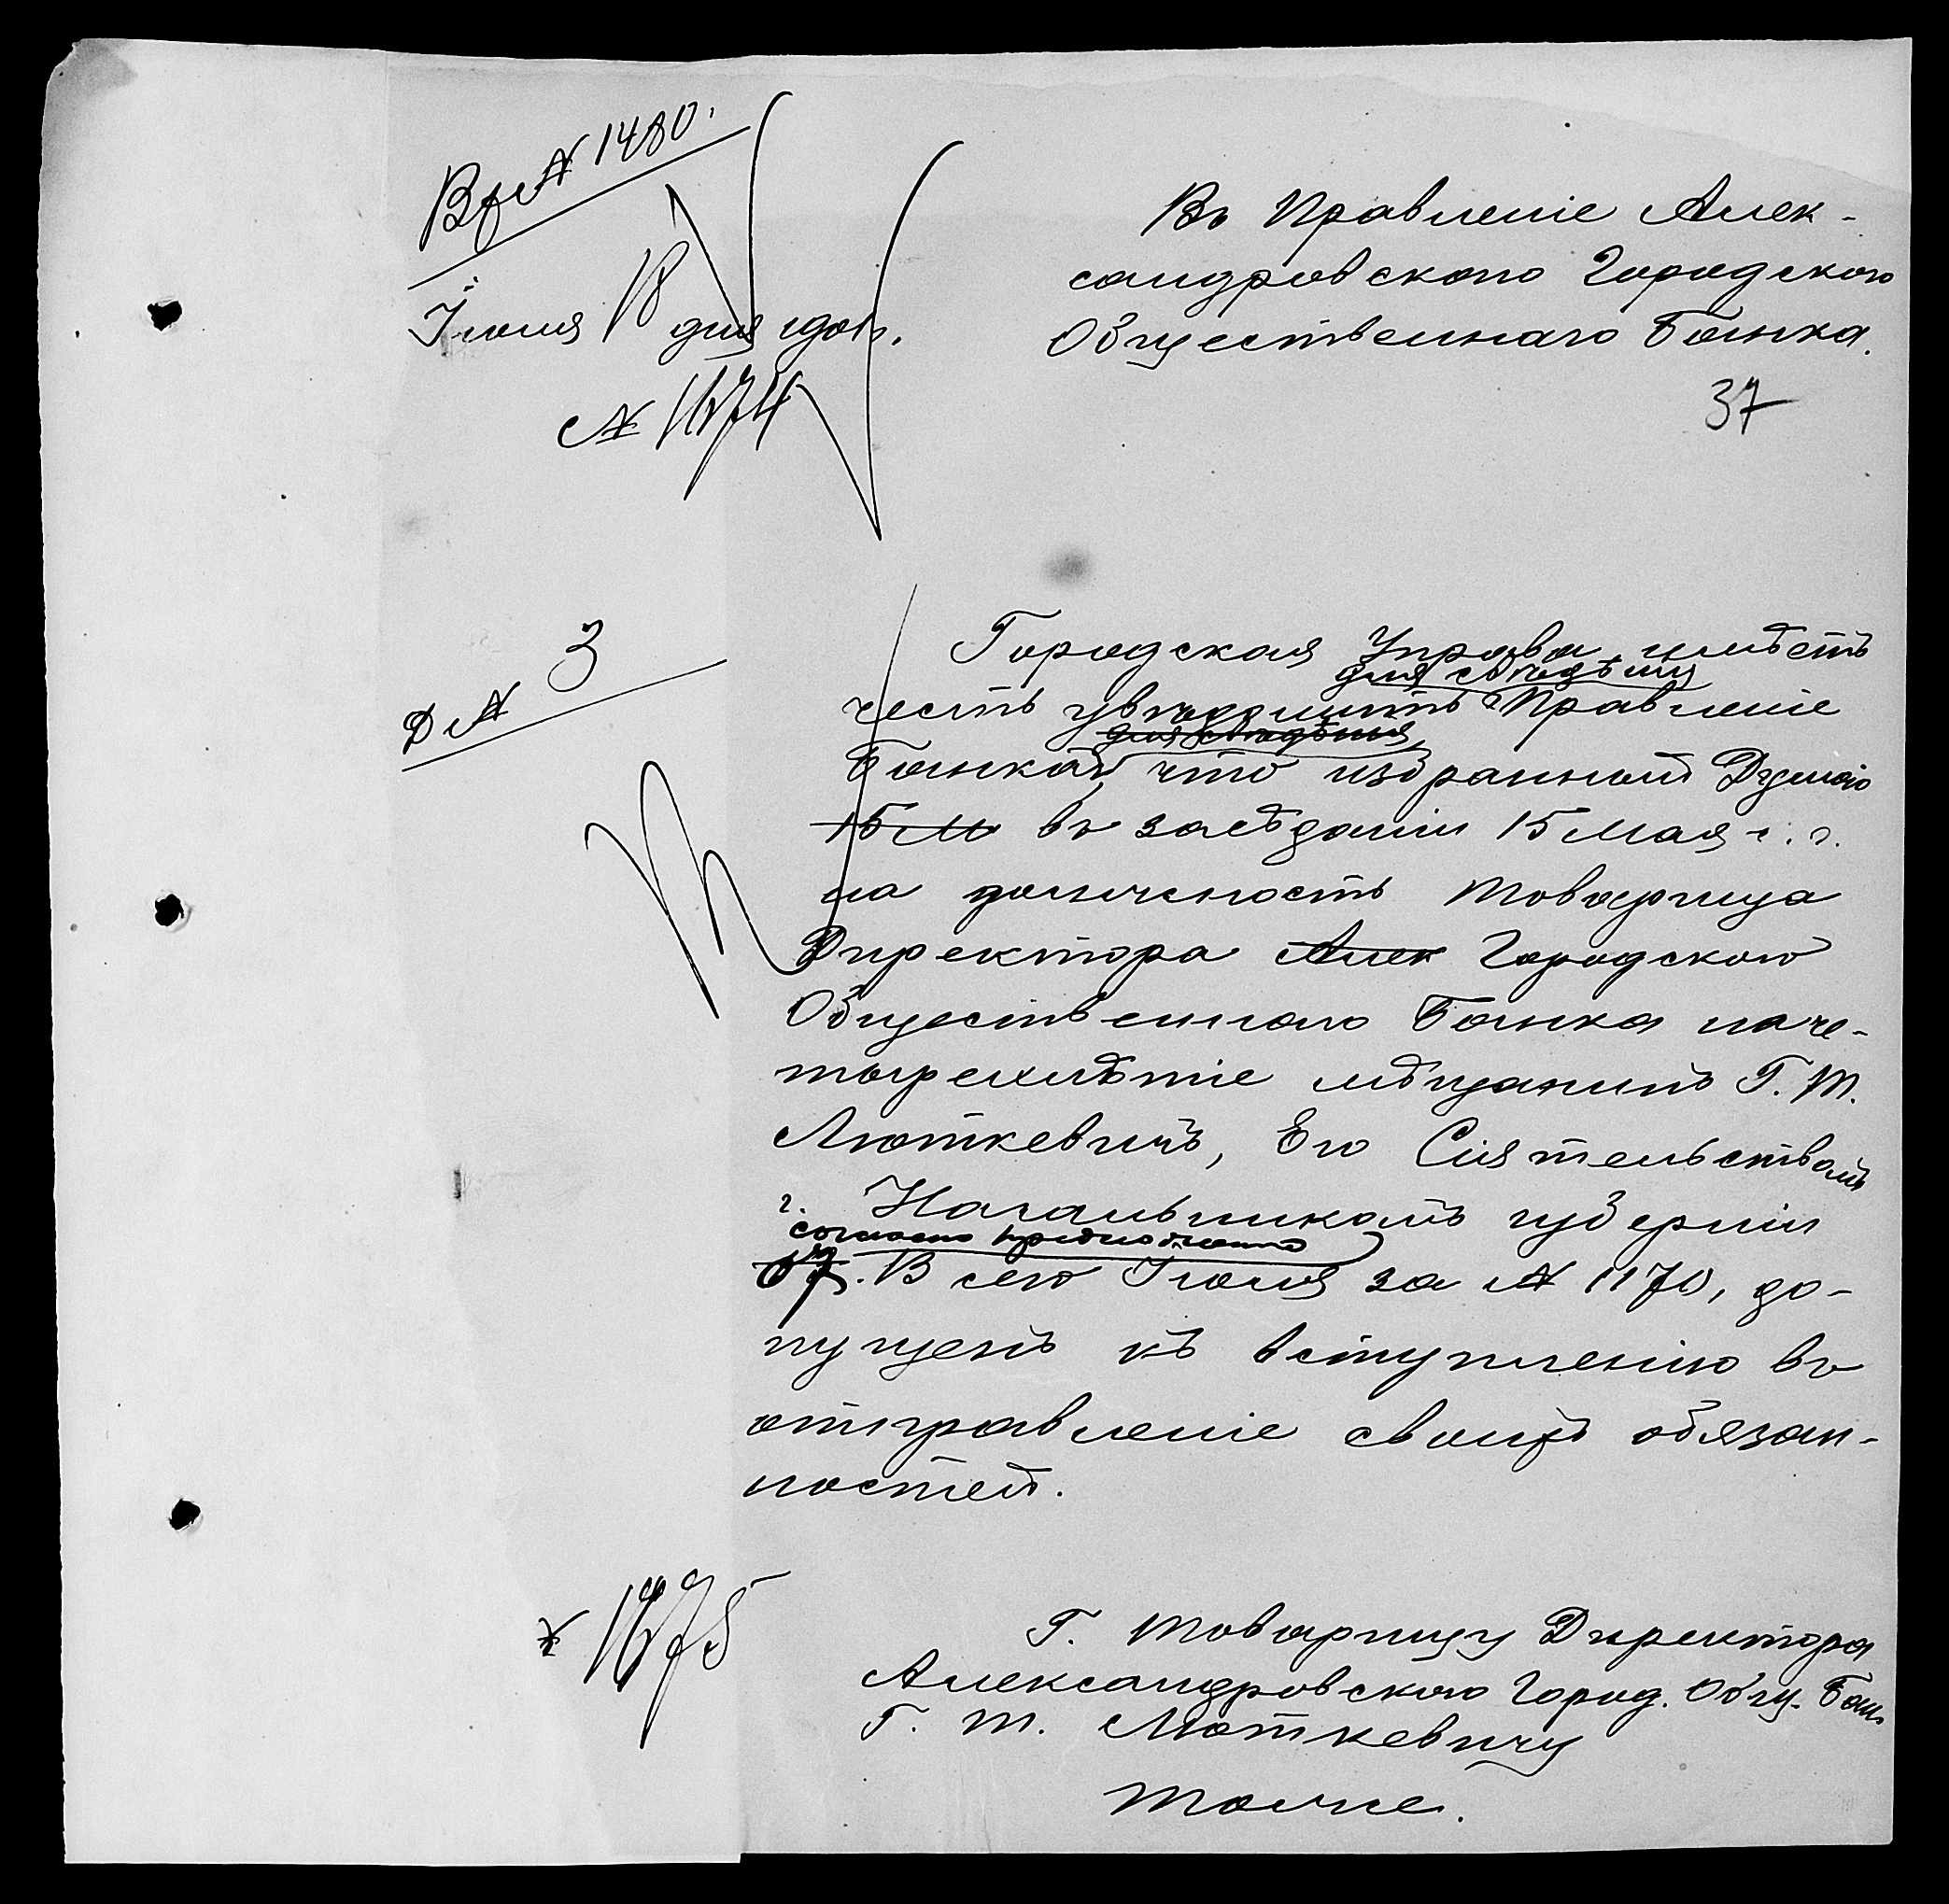 Вх № 1480.
Іюля 18 дня 190 г.
№ 1674
Въ Правленіе Алек-
сандровскаго Городского
Общественнаго Банка.
37
Д № 3
Городская Управа имѣетъ
для свѣдѣнія
честь увѣдомить Правленіе
для свѣдѣнія
Банка, что избранный Думою
15 М въ засѣданіи 15 Мая с. г.
на должность Товарища
Директора Алек Городского
Общественнаго Банка на че-
тырехлѣтіе мѣщанинъ Г. Т.
Люткевичъ, Его Сіятельствомъ
г. Начальникомъ губерніи
согласно предложенію
сего Іюля за № 1170, до-
пущенъ къ вступленію въ
отправленіе своихъ обязан-
ностей.
№ 1675
Г. Товарищу Директора
Александровскаго Город. Общ. Банка
Г. Т. Люткевичу
Тоже.